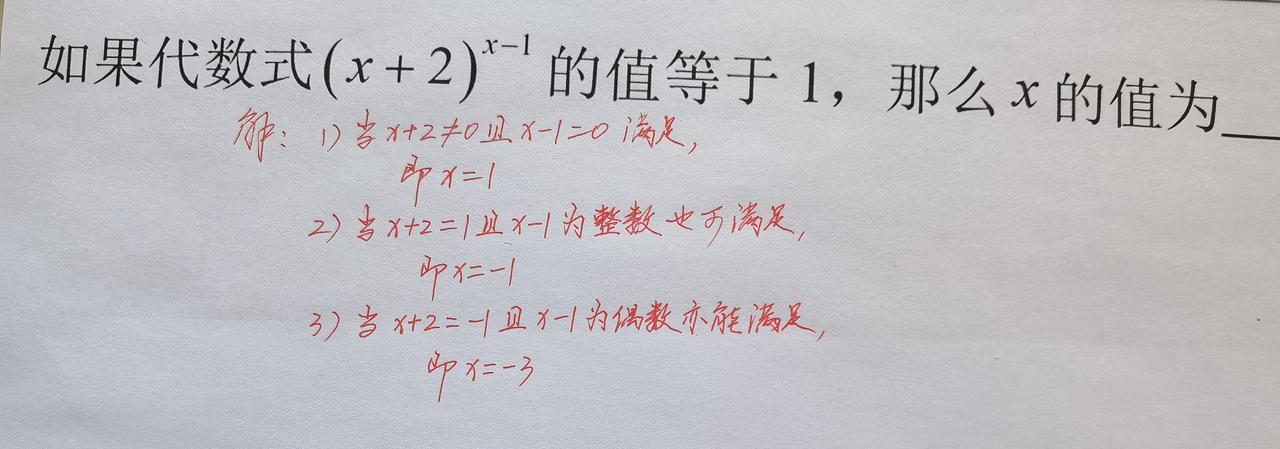 如果代数式(x+2)^{x-1}的值等于1，那么x的值为___
解：1）当x+2≠0且x-1=0满足，
即x=1
2）当x+2=1且x-1为整数也可满足，
即x=-1
3）当x+2=-1且x-1为偶数亦能满足，
即x=-3